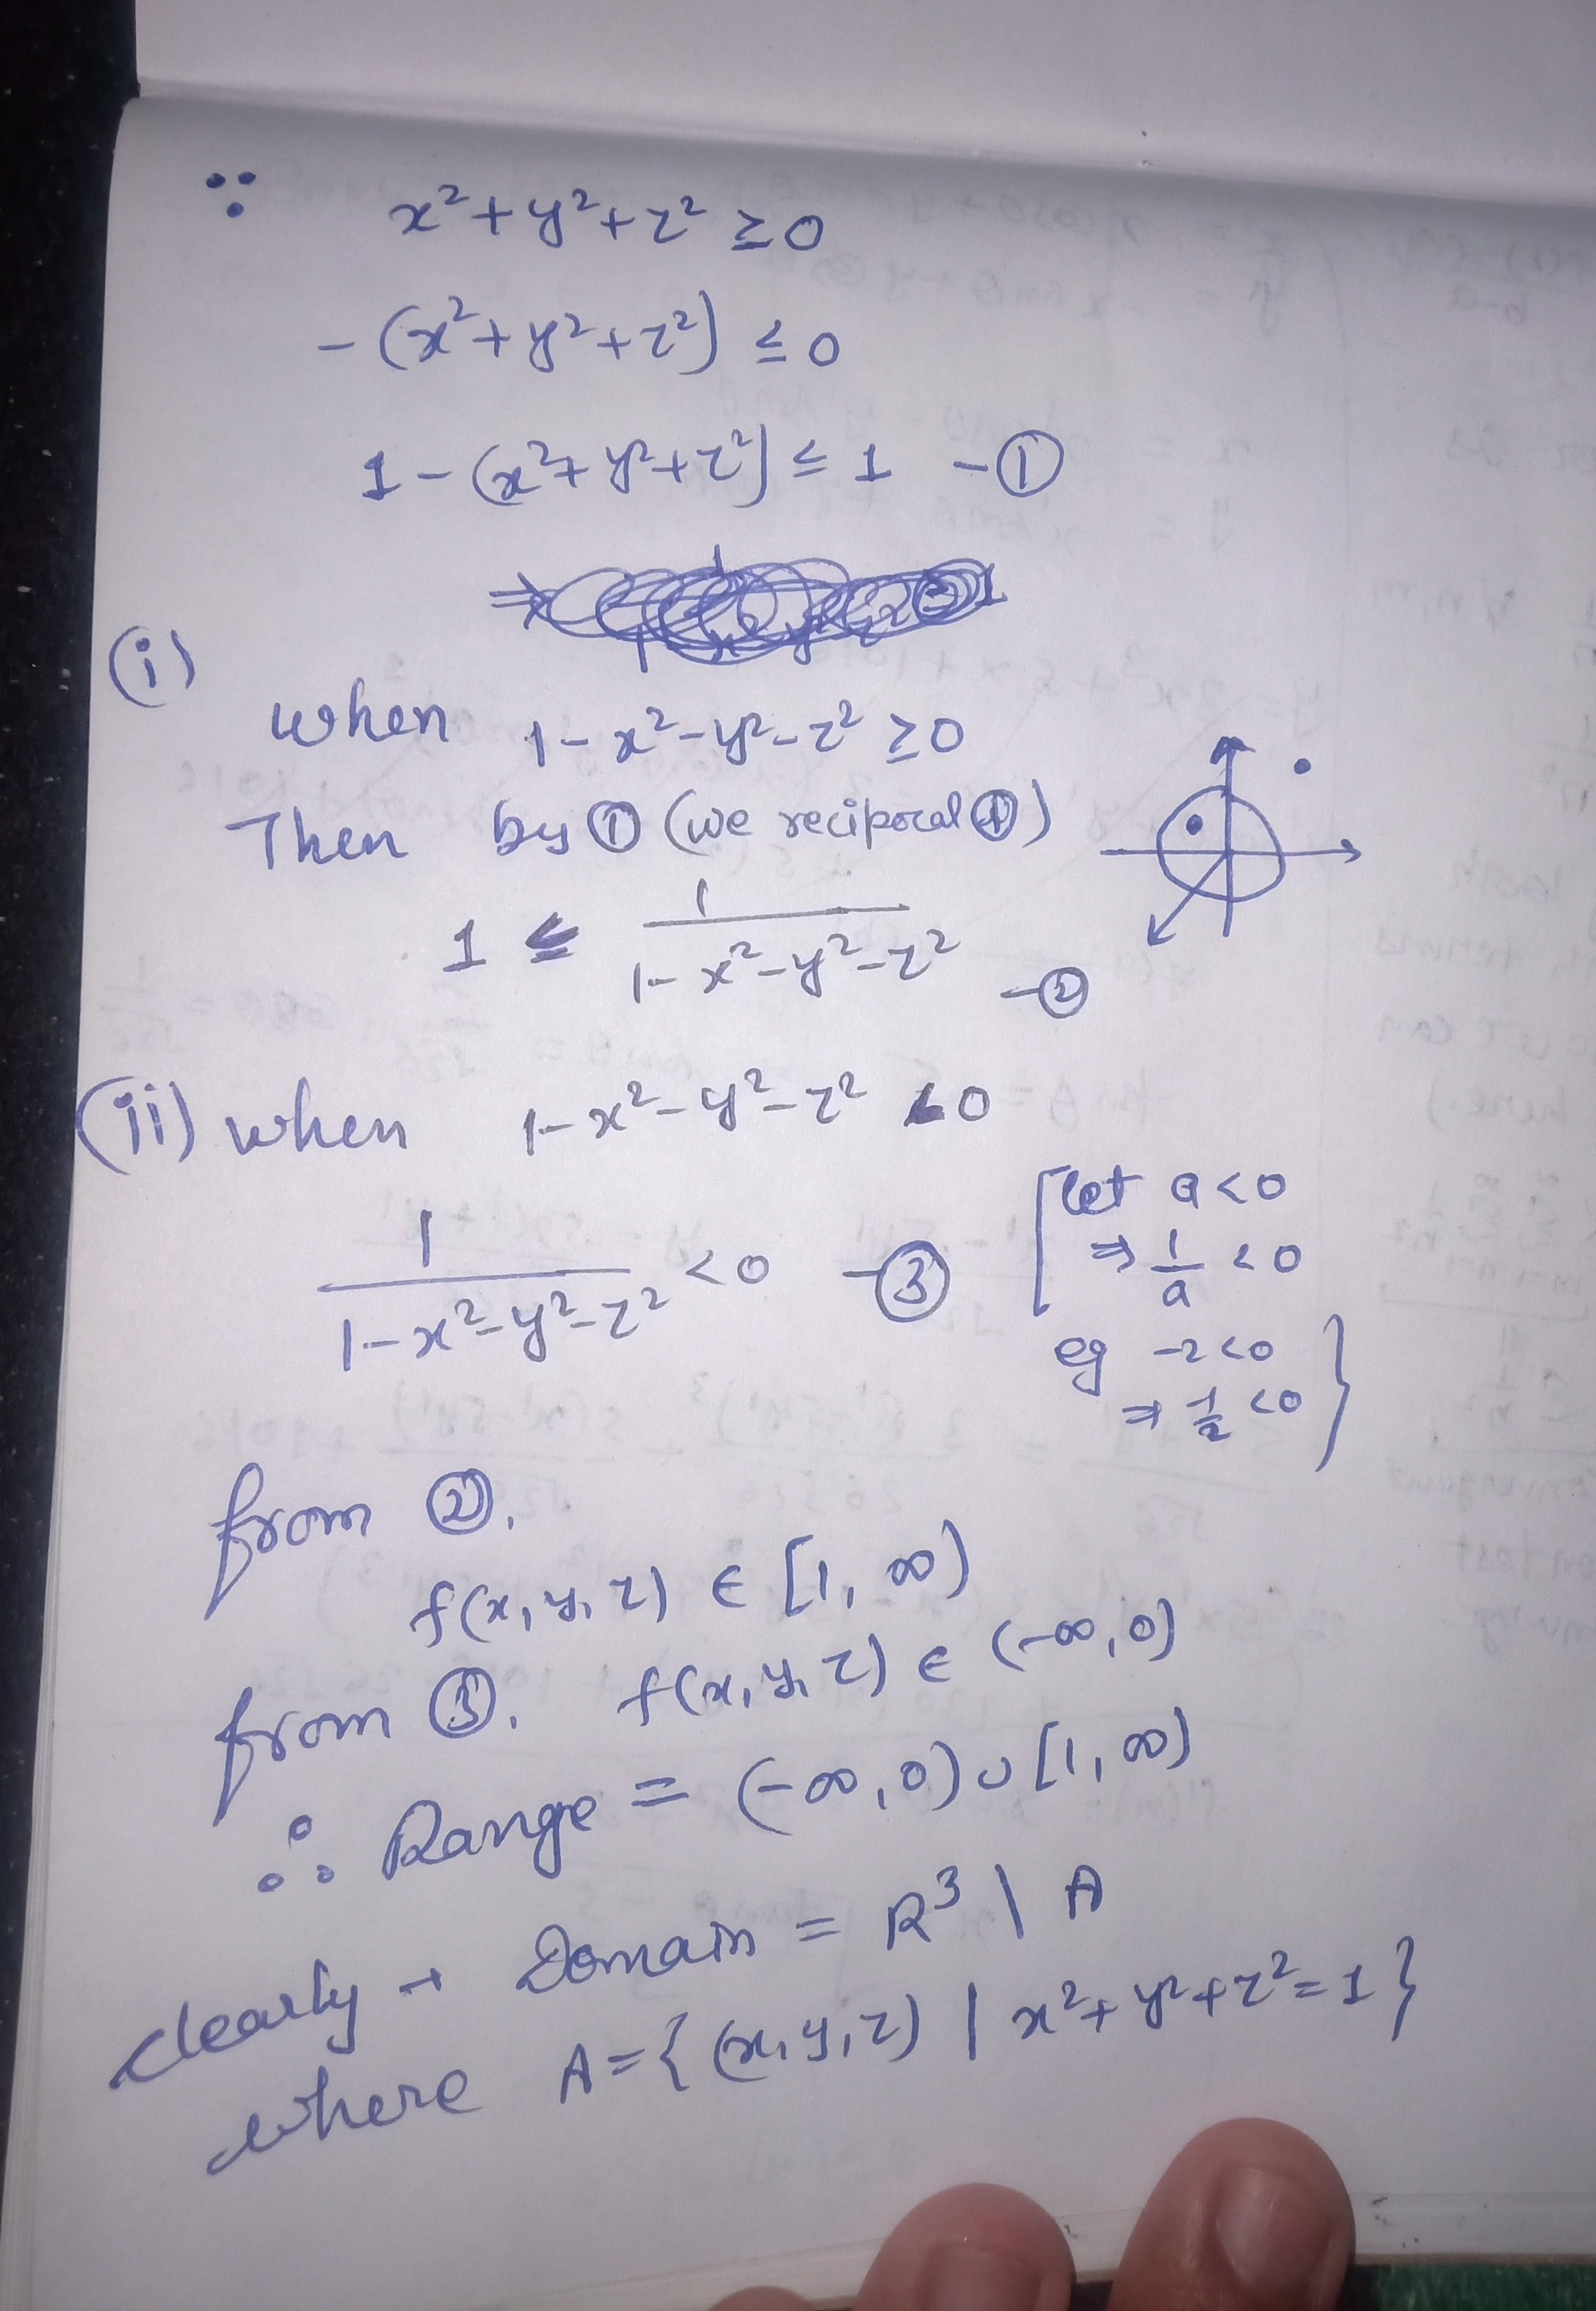 ∵ x²+y²+z² ≥ 0
-(x²+y²+z²) ≤ 0
1-(x²+y²+z²) ≤ 1 -①
⇒
(i)
when 1-x²-y²-z² ≥ 0
Then by ① (we reciporal ①)
1 ≤ 1/(1-x²-y²-z²) -②
(ii) when 1-x²-y²-z² < 0
1/(1-x²-y²-z²) < 0 -③
[let a<0
⇒ 1/a < 0
eg -2<0
⇒ -1/2 <0}
from ②.
f(x,y,z) ∈ [1, ∞)
from ③. f(x,y,z) ∈ (-∞,0)
∴ Range = (-∞,0) ∪ [1,∞)
clearly → Domain = R³ \ A
where A={(x,y,z) | x²+y²+z²=1}